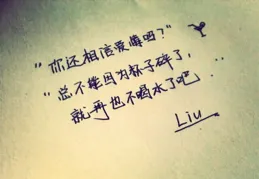 "你还相信爱情吗？"
"总不能因为杯子碎了，
就再也不喝水了吧...
Liu